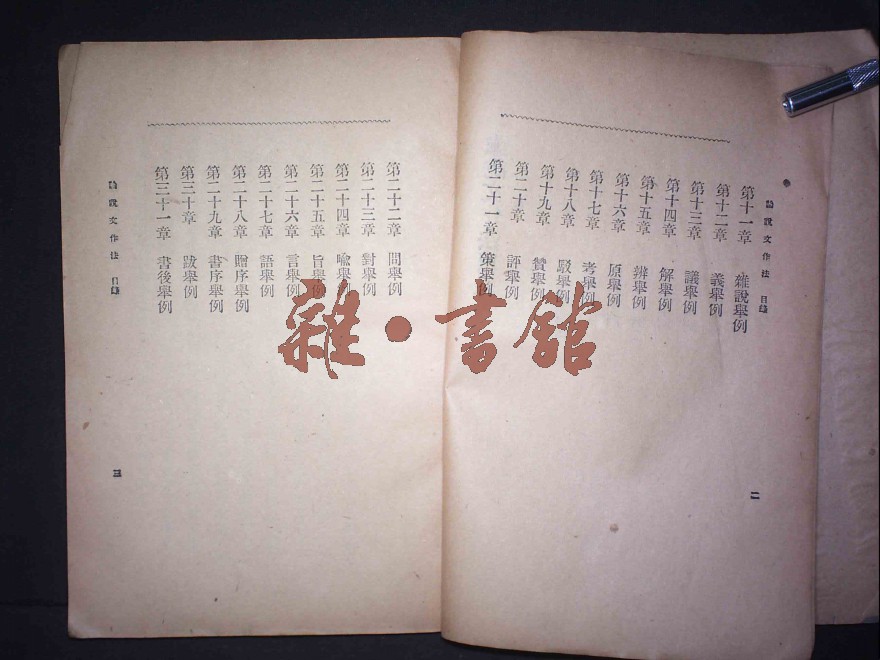 論說文作法 目錄
第十一章 雜說舉例
第十二章 義舉例
第十三章 議舉例
第十四章 解舉例
第十五章 辨舉例
第十六章 原舉例
第十七章 考舉例
第十八章 駁舉例
第十九章 贊舉例
第二十章 評舉例
第二十一章 策舉例
二
第二十二章 問舉例
第二十三章 對舉例
第二十四章 喩舉例
第二十五章 旨舉例
第二十六章 言舉例
第二十七章 語舉例
第二十八章 贈序舉例
第二十九章 書序舉例
第三十章 跋舉例
第三十一章 書後舉例
論說文作法 目錄
三
雜·書館